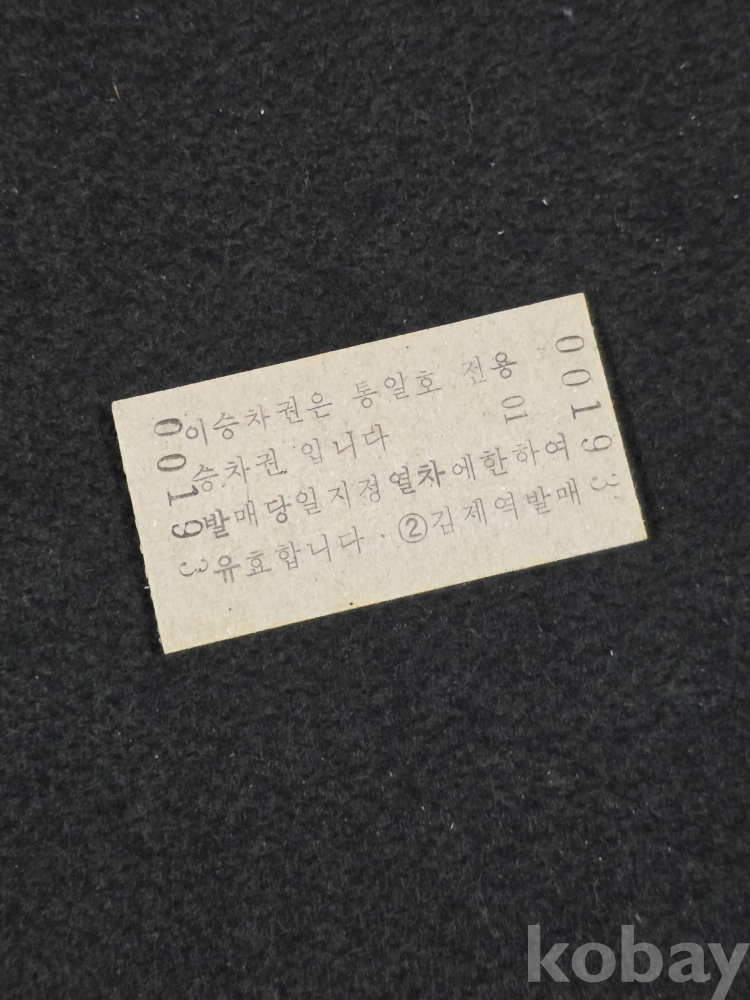 00193
이승차권은 통일호 전용
승차권 입니다
01
발매당일지정열차에한하여
유효합니다. ②김제역발매
00193
kobay